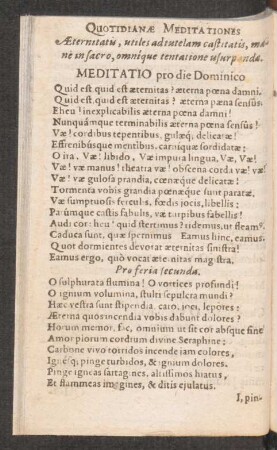 QUOTIDIANÆ MEDITATIONES
Æternitatis, utiles ad tutelam castitatis, ma-
nè in sacro, omniq́ue tentatione usurpandæ.
MEDITATIO pro die Dominico
Quid est quid est æternitas? æterna pœna damni.
Quid est quid est æternitas? æterna pœna sensus.
Eheu! inexplicabilis æterna pœna damni!
Nunquámque terminabilis æterna pœna sensus!
Væ! cordibus tepentibus, gulæq́; delicatæ!
Effrenibúsque mentibus, carniq́ue sordidatæ:
O ira, Væ! libido, Væ impura lingua, Væ, Væ!
Væ! væ manus! theatra væ! obscena corda væ! væ!
Væ! væ gulosa prandia, cœnæque delicatæ!
Tormenta vobis grandia pœnæque sunt paratæ,
Væ sumptuosis ferculis, fœdis jocis, libellis:
Parùmque castis fabulis, væ turpibus labellis!
Audi cor heu! quid sternimus? videmus, ut fleam
Caduca sunt, quæ spernimus Eamus hinc, eamus.
Quot dormientes devorat æternitas sinistra!
Eamus ergo, quò vocat æternitas magistra.
Pro feria secunda.
O sulphurata flumina! O vortices profundi!
O ignium volumina, stulti sepulcra mundi?
Hæc vestra sunt stipendia, caro, joci, lepores:
Æterna quos incendia vobis dabunt dolores?
Horum memor, fac, omnium ut sit cor absque sine
Amor piorum cordium divine Seraphine:
Carbone vivo torridos incende jam colores,
Ignésq́; pinge turbidos, & ignium dolores.
Pinge igneas sartagines, altissimos hiatus,
Et flammeas imagines, & ditis ejulatus.
I, pin-